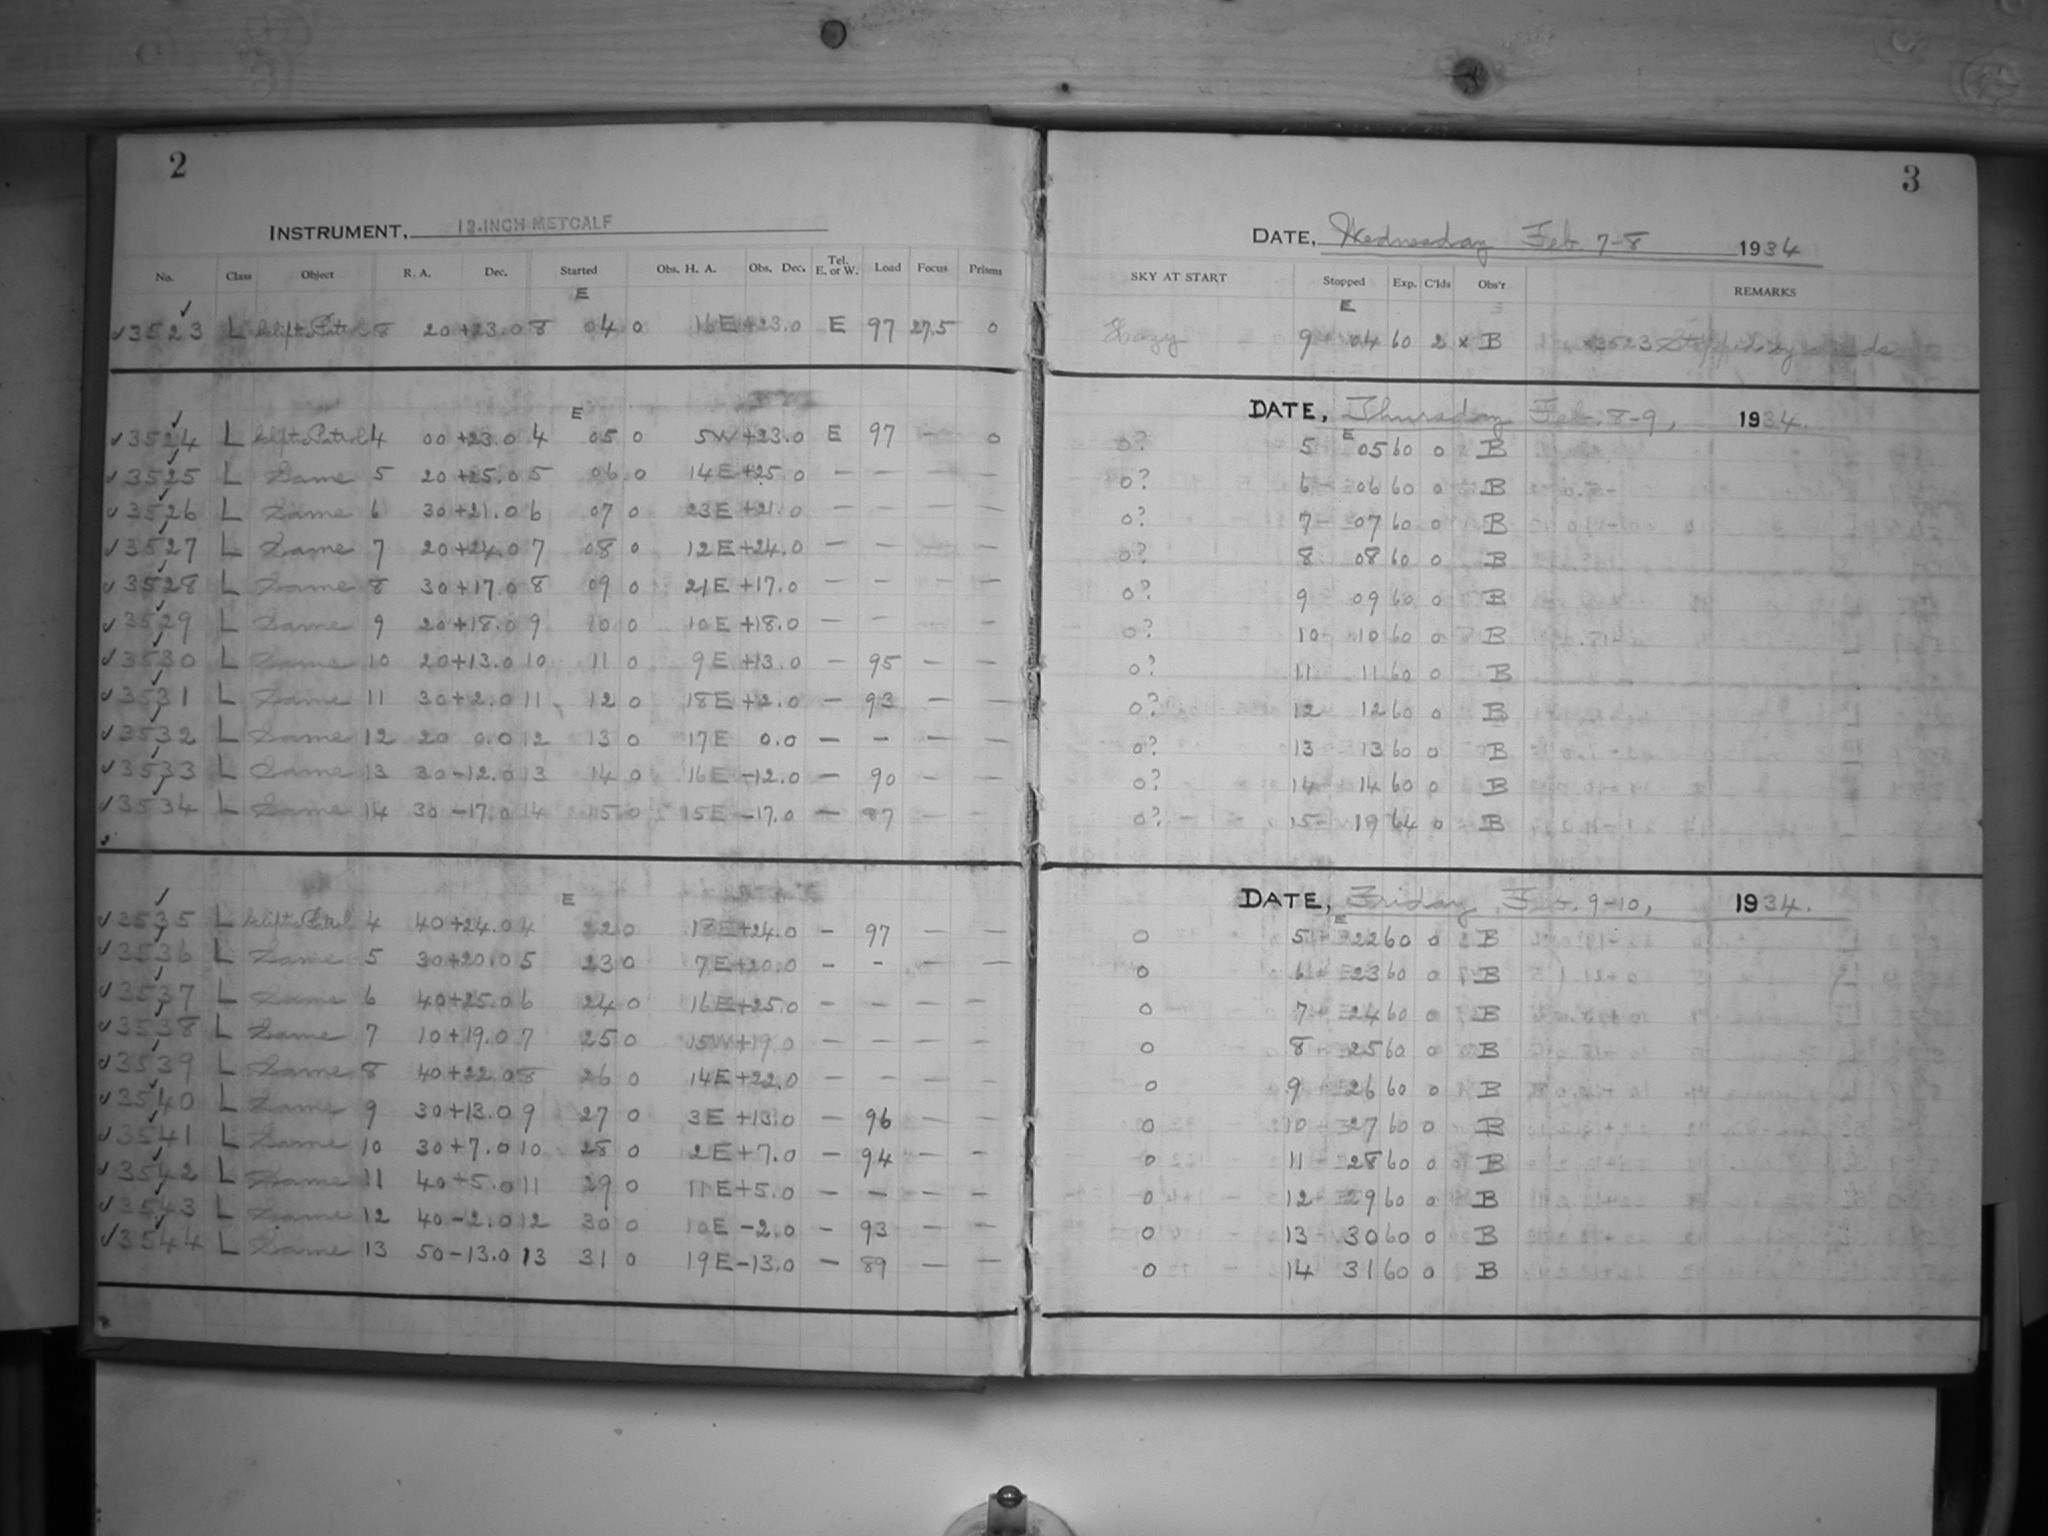 2
INSTRUMENT, 12-INCH METCALF
No. Class Object R. A. Dec. Started Obs. H. A. Obs. Dec. Tel. E. or W. Load Focus Prisms
E
3523 L Ecliptic Patrol 8 20 +23.0 8 04 0 16E +23.0 E 97 27.5 0
E
3524 L Ecliptic Patrol 4 00 +23.0 4 05 0 5W +23.0 E 97 - 0
3525 L Same 5 20 +25.0 5 06 0 14E +25.0 - - - -
3526 L Same 6 30 +21.0 6 07 0 23E +21.0 - - - -
3527 L Same 7 20 +24.0 7 08 0 12E +24.0 - - - -
3528 L Same 8 30 +17.0 8 09 0 21E +17.0 - - - -
3529 L Same 9 20 +18.0 9 10 0 10E +18.0 - - - -
3530 L Same 10 20 +13.0 10 11 0 9E +13.0 - 95 - -
3531 L Same 11 30 +2.0 11 12 0 18E +2.0 - 93 - -
3532 L Same 12 20 0.0 12 13 0 17E 0.0 - - - -
3533 L Same 13 30 -12.0 13 14 0 16E -12.0 - 90 - -
3534 L Same 14 30 -17.0 14 15 0 15E -17.0 - 87 - -
E
3535 L Ecliptic Patrol 4 40 +24.0 4 22 0 18E +24.0 - 97 - -
3536 L Same 5 30 +20.0 5 23 0 7E +20.0 - - - -
3537 L Same 6 40 +25.0 6 24 0 16E +25.0 - - - -
3538 L Same 7 10 +19.0 7 25 0 15W +19.0 - - - -
3539 L Same 8 40 +22.0 8 26 0 14E +22.0 - - - -
3540 L Same 9 30 +13.0 9 27 0 3E +13.0 - 96 - -
3541 L Same 10 30 +7.0 10 28 0 2E +7.0 - 94 - -
3542 L Same 11 40 +5.0 11 29 0 11E +5.0 - - - -
3543 L Same 12 40 -2.0 12 30 0 10E -2.0 - 93 - -
3544 L Same 13 50 -13.0 13 31 0 19E -13.0 - 89 - -
3
DATE, Wednesday Feb. 7-8 1934
SKY AT START Stopped Exp. C'lds Obs'r REMARKS
E
Hazy 9 04 60 2 x B x3523 Stopped by clouds
DATE, Thursday Feb. 8-9, 1934.
E
0? 5 05 60 0 B
0? 6 06 60 0 B
0? 7 07 60 0 B
0? 8 08 60 0 B
0? 9 09 60 0 B
0? 10 10 60 0 B
0? 11 11 60 0 B
0? 12 12 60 0 B
0? 13 13 60 0 B
0? 14 14 60 0 B
0? 15 19 64 0 B
DATE, Friday Feb. 9-10, 1934.
E
0 5 22 60 0 B
0 6 23 60 0 B
0 7 24 60 0 B
0 8 25 60 0 B
0 9 26 60 0 B
0 10 27 60 0 B
0 11 28 60 0 B
0 12 29 60 0 B
0 13 30 60 0 B
0 14 31 60 0 B